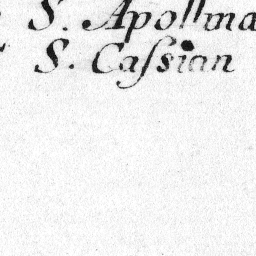 S. Apollina
S. Caſsian